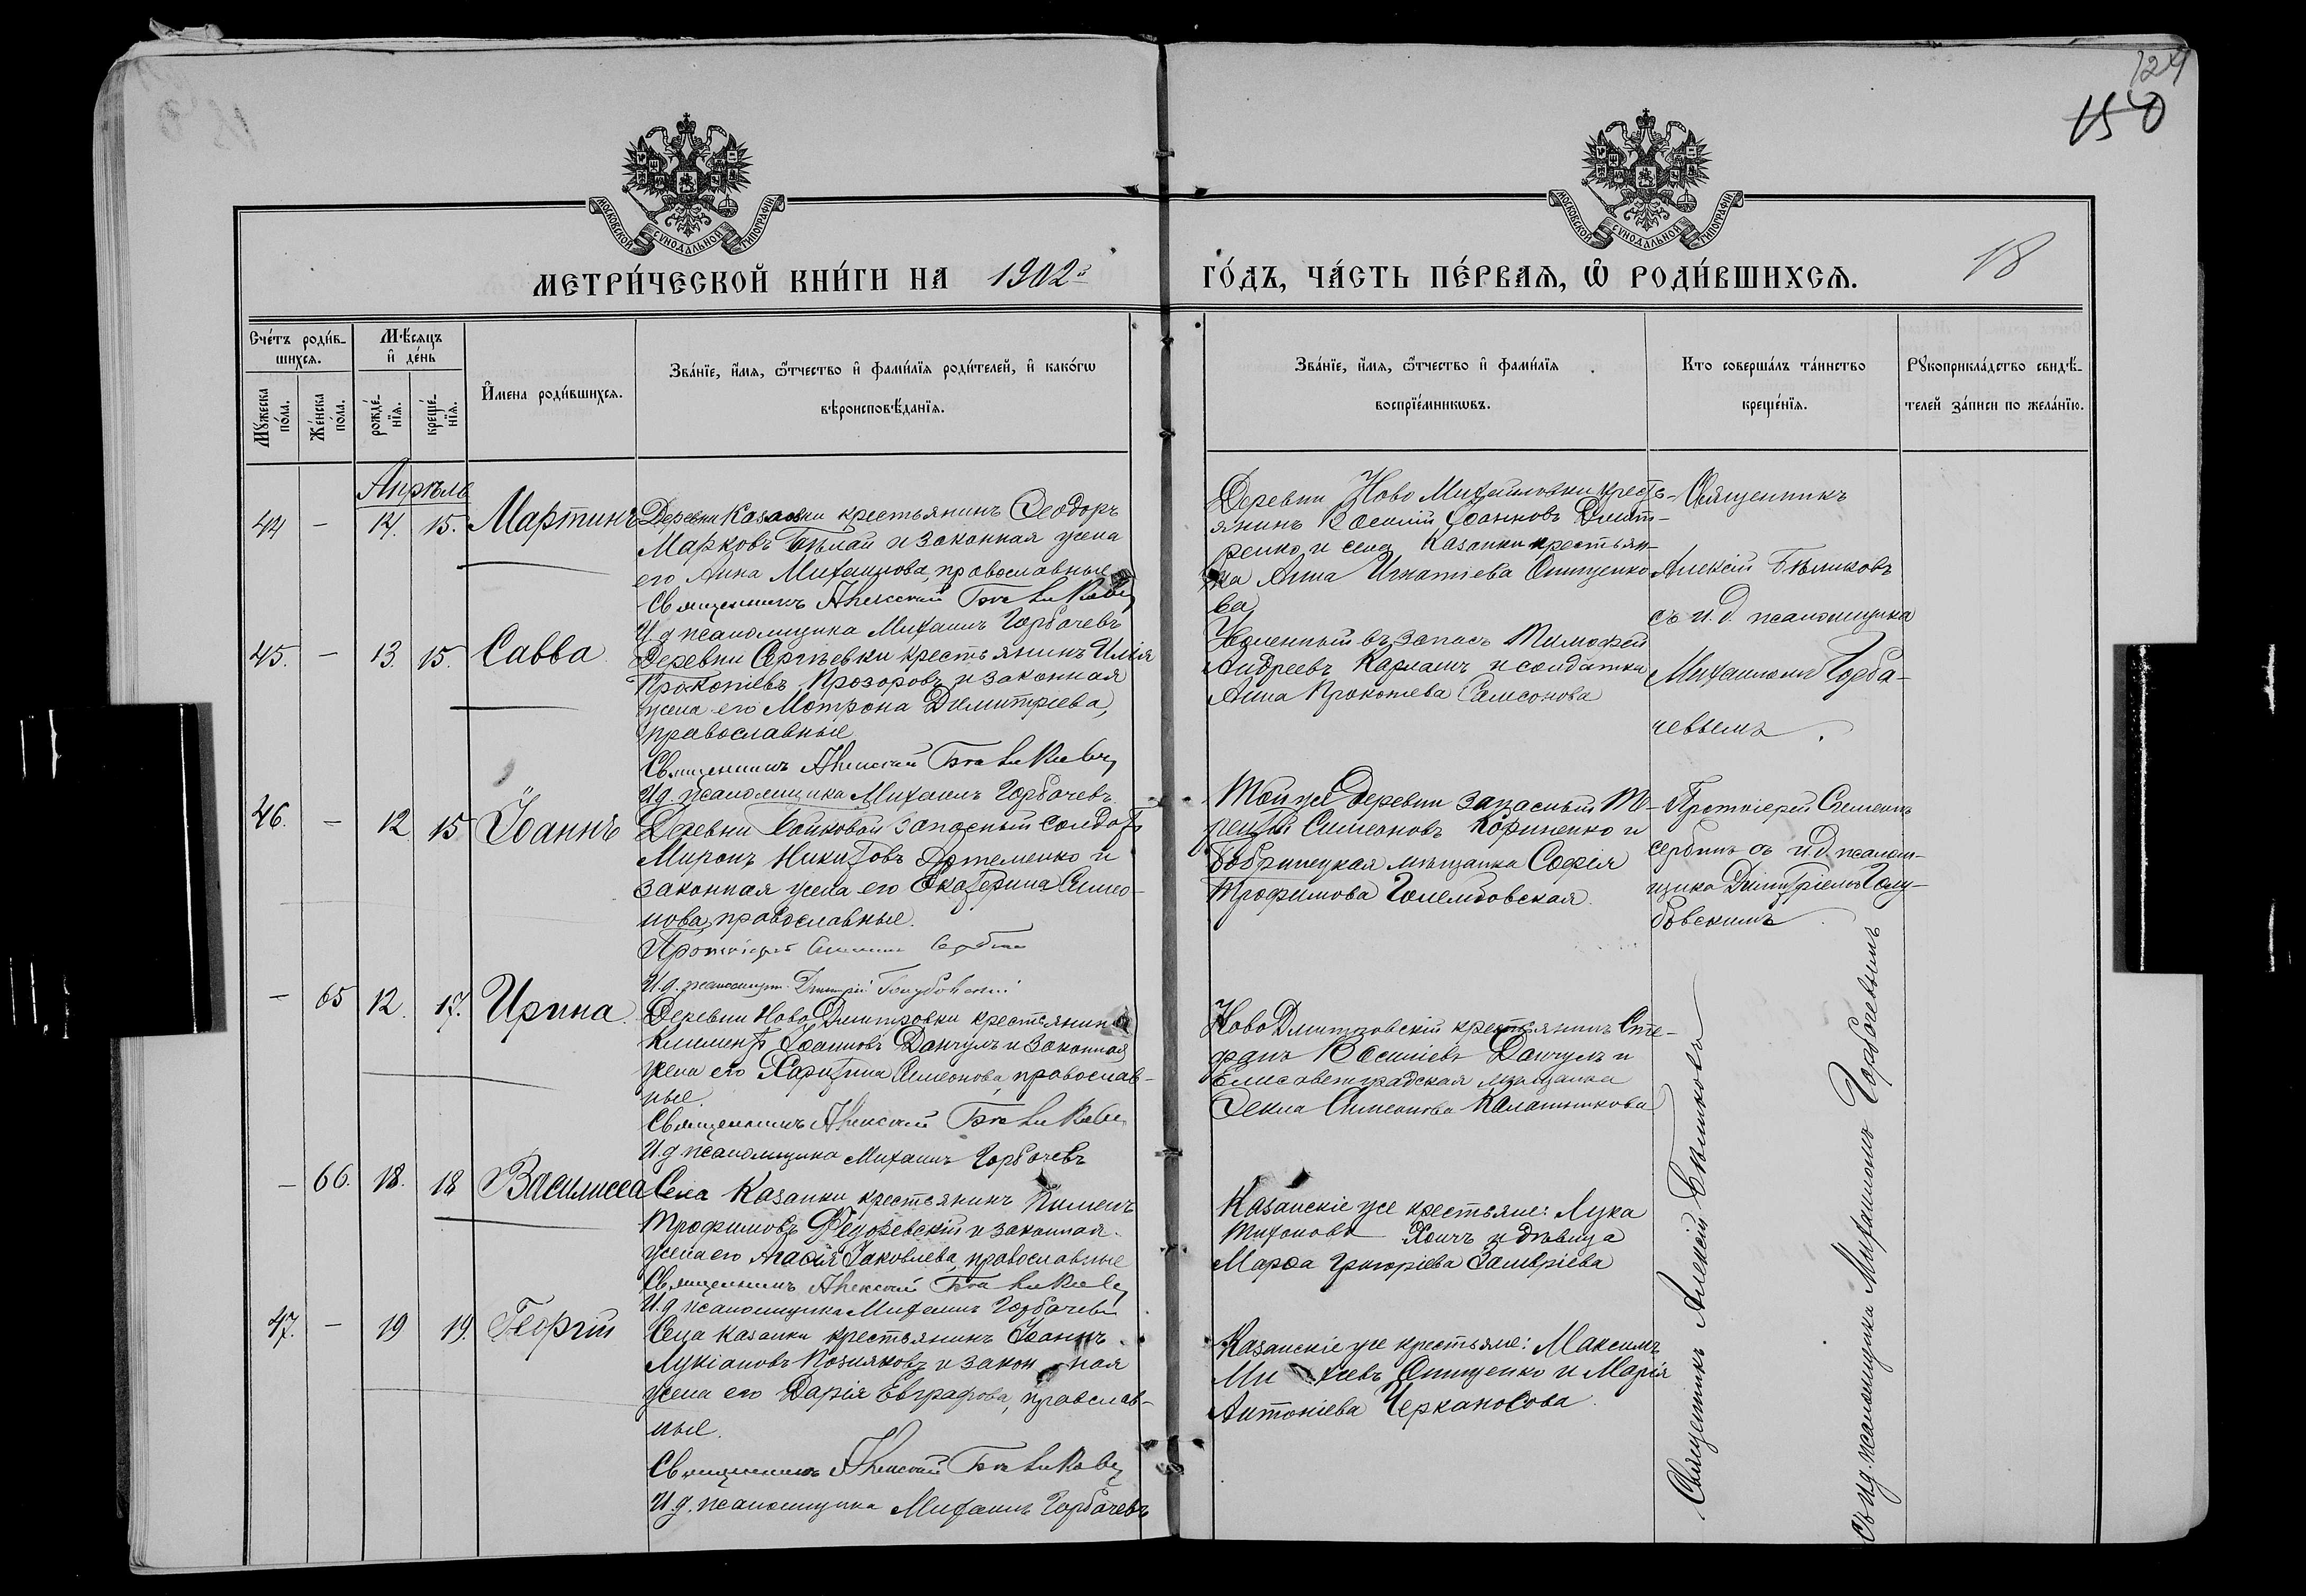 124
150
МОСКОВСКОЙ СѴНОДАЛЬНОЙ ТИПОГРАФІИ
МОСКОВСКОЙ СѴНОДАЛЬНОЙ ТИПОГРАФІИ
МЕТРИ́ЧЕСКОЙ КНИ́ГИ НА 1902й
ГО́ДЪ, ЧА́СТЬ ПЕ́РВАѦ, Ѽ РОДИ́ВШИХСѦ.
18
Сче́тъ роди́в-
шихсѧ.
Мꙋ́жеска по́ла.
Же́нска по́ла.
Мѣ́сѧцъ
и҆ де́нь
рожде́-нїѧ.
креще́-нїѧ.
И҆мена роди́вшихсѧ.
Зва́нїе, и҆́мѧ, ѻ҆́тчество и҆ фами́лїѧ роди́телей, и҆ како́гѡ
вѣроисповѣ́данїѧ.
Зва́нїе, и҆́мѧ, ѻ҆́тчество и҆ фами́лїѧ
воспрїе́мникѡвъ.
Кто соверша́лъ та́инство
креще́нїѧ.
Рꙋкоприкла́дство свидѣ́-
телей за́писи по жела́нїю.
Апрѣль
44 – 14. 15. Мартинъ
Деревни Казанки крестьянинъ Ѳеодоръ
Марковъ Бѣлай и законная жена
его Анна Михаилова, православные
Священникъ Алексій Бѣликовъ
И д псаломщика Михаилъ Горбачевъ
Деревни Ново Михайловки кресть-
янинъ Василій Іоанновъ Дмит-
ренко и села Казанки крестьян-
ка Анна Игнатіева Онищенко
ва
Священникъ
Алексій Бѣликовъ
съ и.д. псаломщика
Михаиломъ Горба-
чевымъ.
45. – 13. 15. Савва
Деревни Сергѣевки крестьянинъ Илія
Прокопіевъ Прозоровъ и законная
жена его Мотрона Димитріева,
православные
Священникъ Алексій Бѣликовъ
Ид. псаломщика Михаилъ Горбачевъ.
Уволенный въ запасъ Тимофей
Андреевъ Карлашъ и солдатка
Анна Прокопіева Самсонова
46. – 12 15 Іоаннъ
Мирона Никитовъ Артеменко и
законная жена его Екатерина Симео-
нова, православные.
Протоіерей Симеонъ Сербинъ
И.д. псаломщ. Димитрій Голубовскій
Симеоновъ Кориненко и
Бобринецкая мѣщанка Софія
Трофимова Голембовская.
Протоіерей Симеонъ
Сербинъ съ и.д. псалом-
щика Димитріемъ Голу-
бовскимъ.
– 65 12. 17. Ирина.
Деревни Ново Дмитровки крестьянинъ
Климентъ Іоанновъ Данчулъ и законная
жена его Харитина Симеонова, православ-
ные.
Священникъ Алексій Бѣликовъ
И.д псаломщика Михаилъ Горбачевъ
Ново Дмитровскій крестьянинъ Сте-
фанъ Василіевъ Данчулъ и
Елисаветградская мѣщанка
Ѳекла Симеонова Калашникова
– 66. 18. 18 Василисса
Села Казанки крестьянинъ Пименъ
Трофимовъ Федоревскій и законная
жена его Агафія Іаковлева, православные
Священникъ Алексій Бѣликовъ
И.д псаломщика Михаилъ Горбачевъ
Казанскіе же крестьяне: Лука
Тихоновъ и дѣвица
Марѳа Григоріева
47. – 19 19. Георгій
Села Казанки крестьянинъ Іоаннъ
Лукіановъ Позняковъ и законная
жена его Дарія Евграфова, православ-
ные.
Священникъ Алексій Бѣликовъ
И.д. псаломщика Михаилъ Горбачевъ
Казанскіе же крестьяне: Максимъ
Онищенко и Марія
Антоніева Черканосова.
Священникъ Алексій Бѣликовъ
Съ и.д. псаломщика Михаиломъ Горбачевымъ